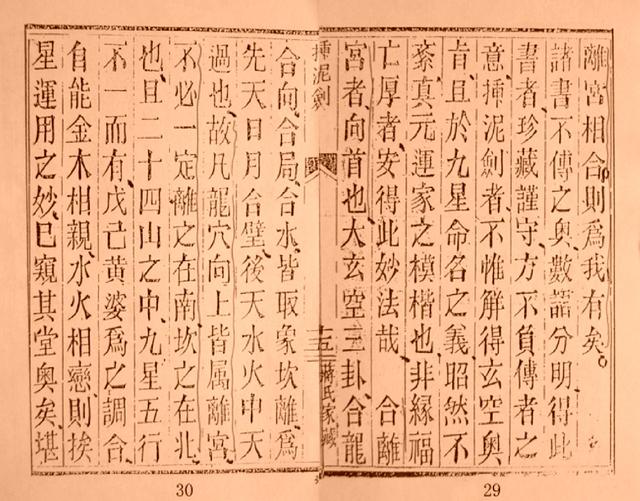 離宮相合則爲我有矣
諸書不傳之奥數語分明得此
書者珍藏謹守方不負傳者之
意揷泥劍者不惟解得玄空奥
旨且於九星命名之義昭然不
紊真元運家之模楷也非緣福
亡厚者安得此妙法哉　合離
宮者向首也大玄空三卦合龍
29
揷泥劍
十五
蔣氏家藏
合向合局合水皆取象坎離爲
先天日月合壁後天水火中天
過也故凡龍穴向上皆屬離宮
不必一定離之在南坎之在北
也且二十四山之中九星五行
不一而有戊己黃婆爲之調合
自能金木相親水火相戀則挨
星運用之妙已窺其堂奥矣堪
30